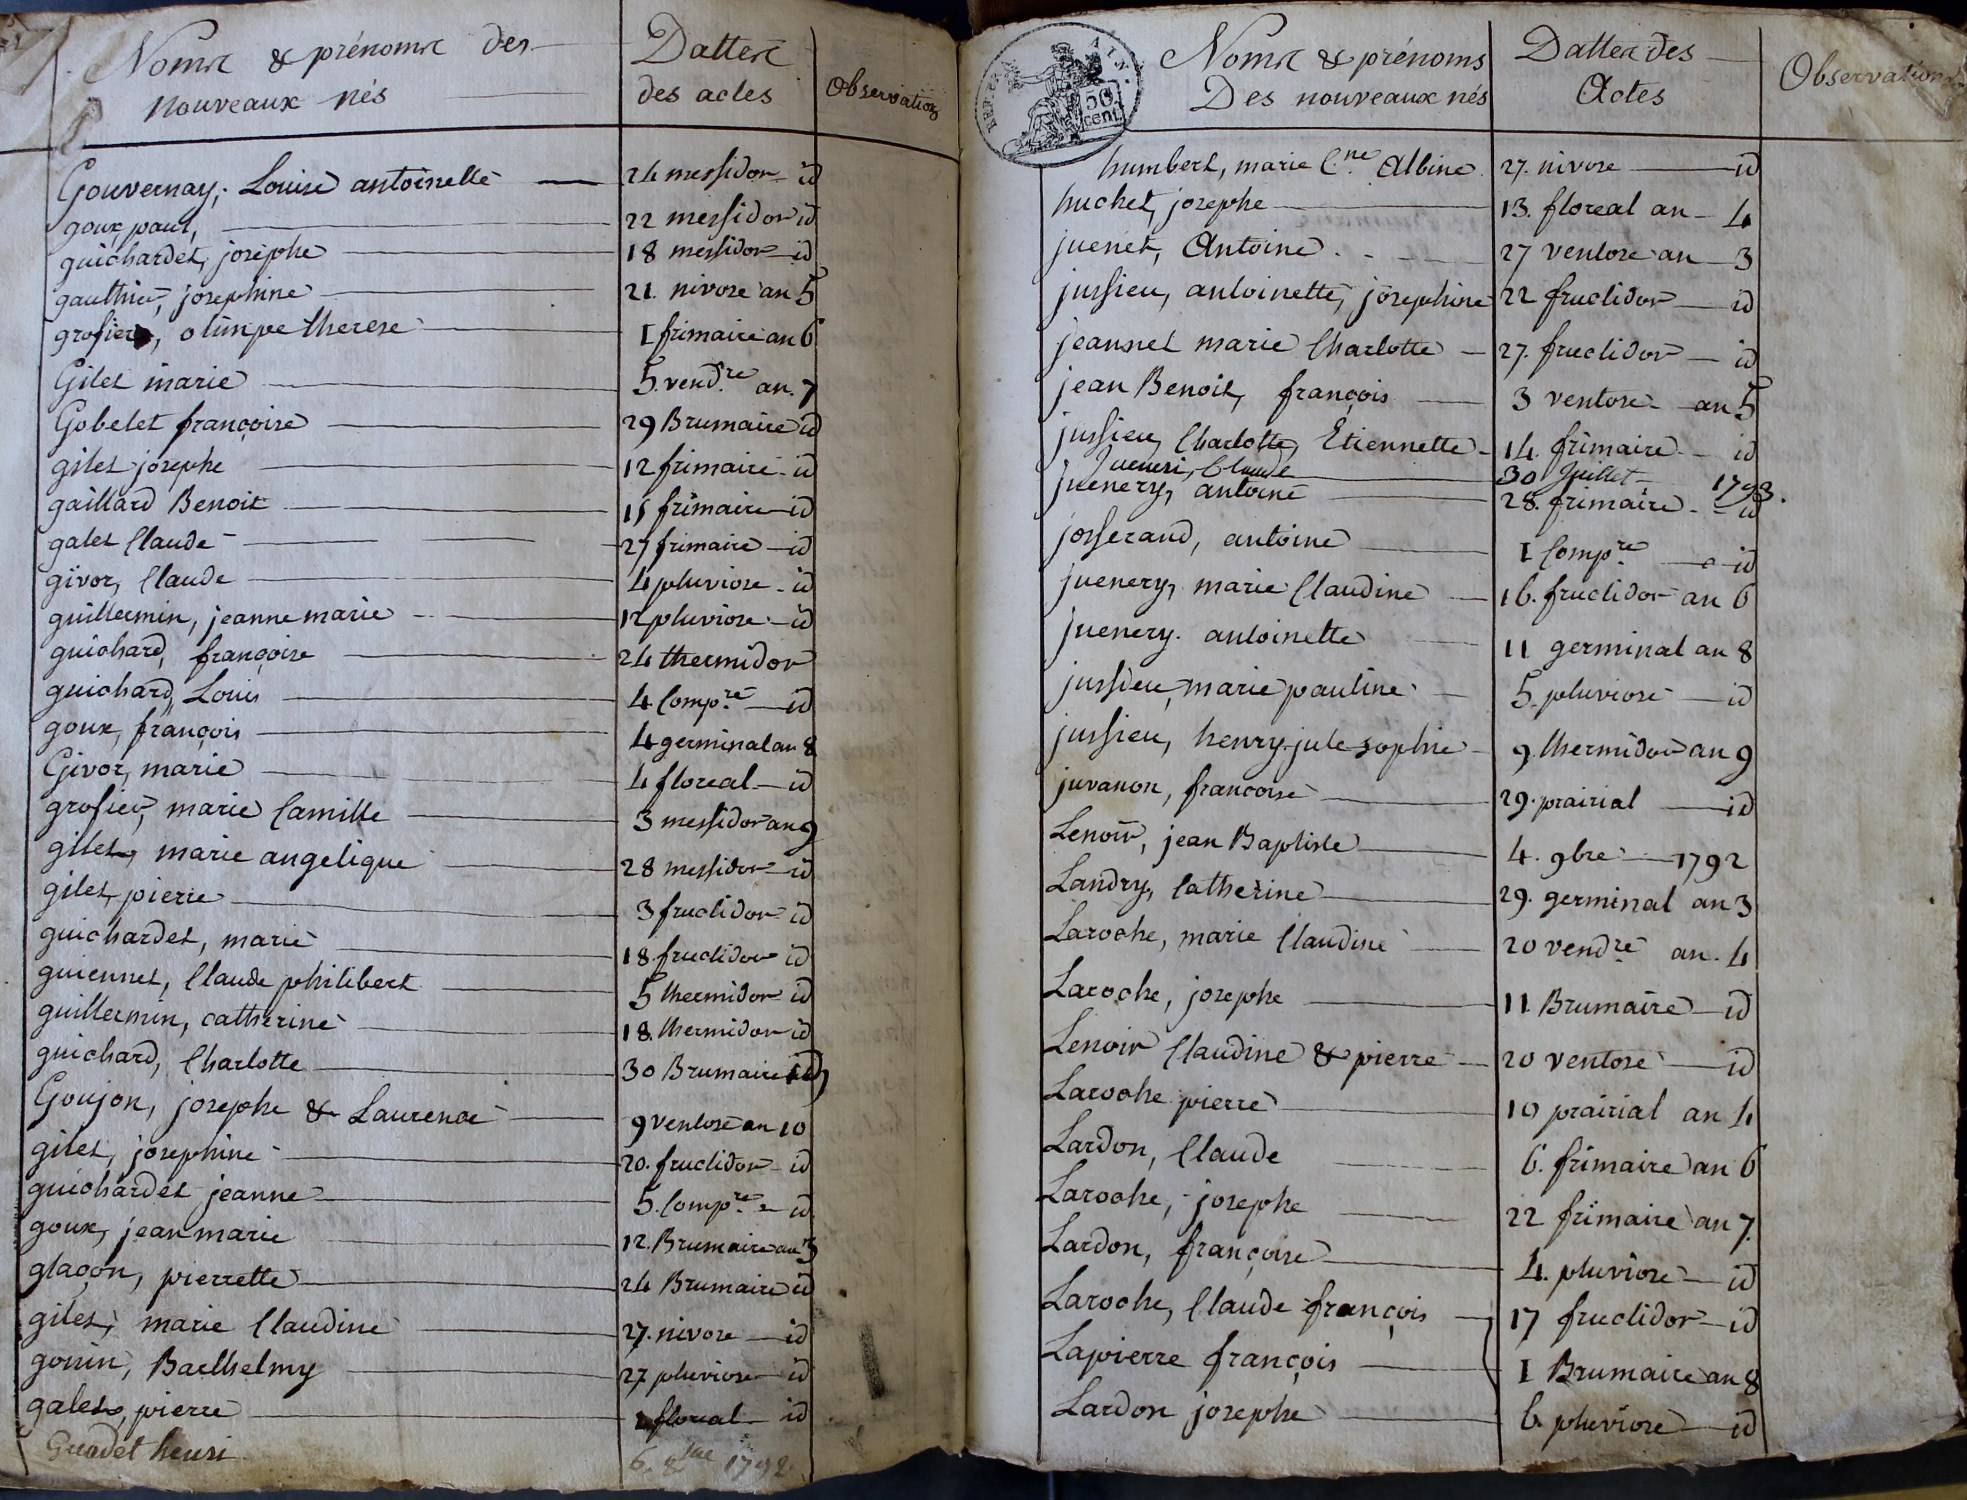 Noms & prénoms des
nouveaux nés
Dattes
des actes
Observation
Gouvernay, Louise antoinette 24 messidor id
goux paul, 22 messidor id
guichardet, josephe 18 messidor id
gauthier, josephine 21. nivose an 5
grofier, olimpe therese 1 frimaire an 6
Gilet marie 5. vend.re an. 7
Gobelet françoise 29 Brumaire id
gilet josephe 12 frimaire id
gaillard Benoit 15 frimaire id
galet Claude 27 frimaire id
givor, Claude 4 pluviose id
guillermin, jeanne marie 12 pluviose id
guichard, françoise 24 thermidor
guichard, Louis 4. Comp.re id
goux, françois 4 germinal an 8
Givor, marie 4 floreal id
grofier, marie Camille 3 messidor an 9
gilet, marie angelique 28 messidor id
gilet, pierre 3 fructidor id
guichardet, marie 18 fructidor id
guiennet, Claude philibert 5 thermidor id
guillermin, catherine 18. thermidor id
guichard, Charlotte 30 Brumaire
Goujon, josephe & Laurence 9 ventose an 10
gilet, josephine 20. fructidor id
guichardet jeanne 5. Comp.re id
goux, jean marie 12. Brumaire an 3
glaçon, pierrette 24 Brumaire id
gilet, marie Claudine 27. nivose id
gonin, Barthelmy 27 pluviose id
galet, pierre floreal id
henri 6. 1792.
Noms & prénoms
Des nouveaux nés
Dattes des
Actes
Observation
REP. FRA.
50
cent.
humbert, marie C.ne Albine 27. nivose id
huchet, josephe 13. floreal an 4
juenet, Antoine 27 ventose an 3
jussieu, antoinette, josephine 22 fructidor id
jeannet marie Charlotte 27. fructidor id
jean Benoit, françois 3 ventose an 5
jussieu, Charlotte, Etiennette 14. frimaire id
Claude 30 Juillet 1793.
juenery, antoine 28. frimaire id
josserand, antoine 1 Comp.re id
juenery, marie Claudine 16. fructidor an 6
juenery. antoinette 11 germinal an 8
jussieu, marie pauline 5. pluviose id
jussieu, henry jule sophie 9 thermidor an 9
juvanon, francoise 29. prairial id
Lenoir, jean Baptiste 4. 9bre 1792
Landry, Catherine 29. germinal an 3
Laroche, marie Claudine 20 vend.re an. 4
Laroche, josephe 11. Brumaire id
Lenoir Claudine & pierre 20 ventose id
Laroche pierre 10 prairial an 4
Lardon, Claude 6. frimaire an 6
Laroche, josephe 22 frimaire an 7.
Lardon, françoise 4. pluviose id
Laroche, Claude françois 17 fructidor id
Lapierre françois 1 Brumaire an 8
Lardon josephe 6 pluviose id